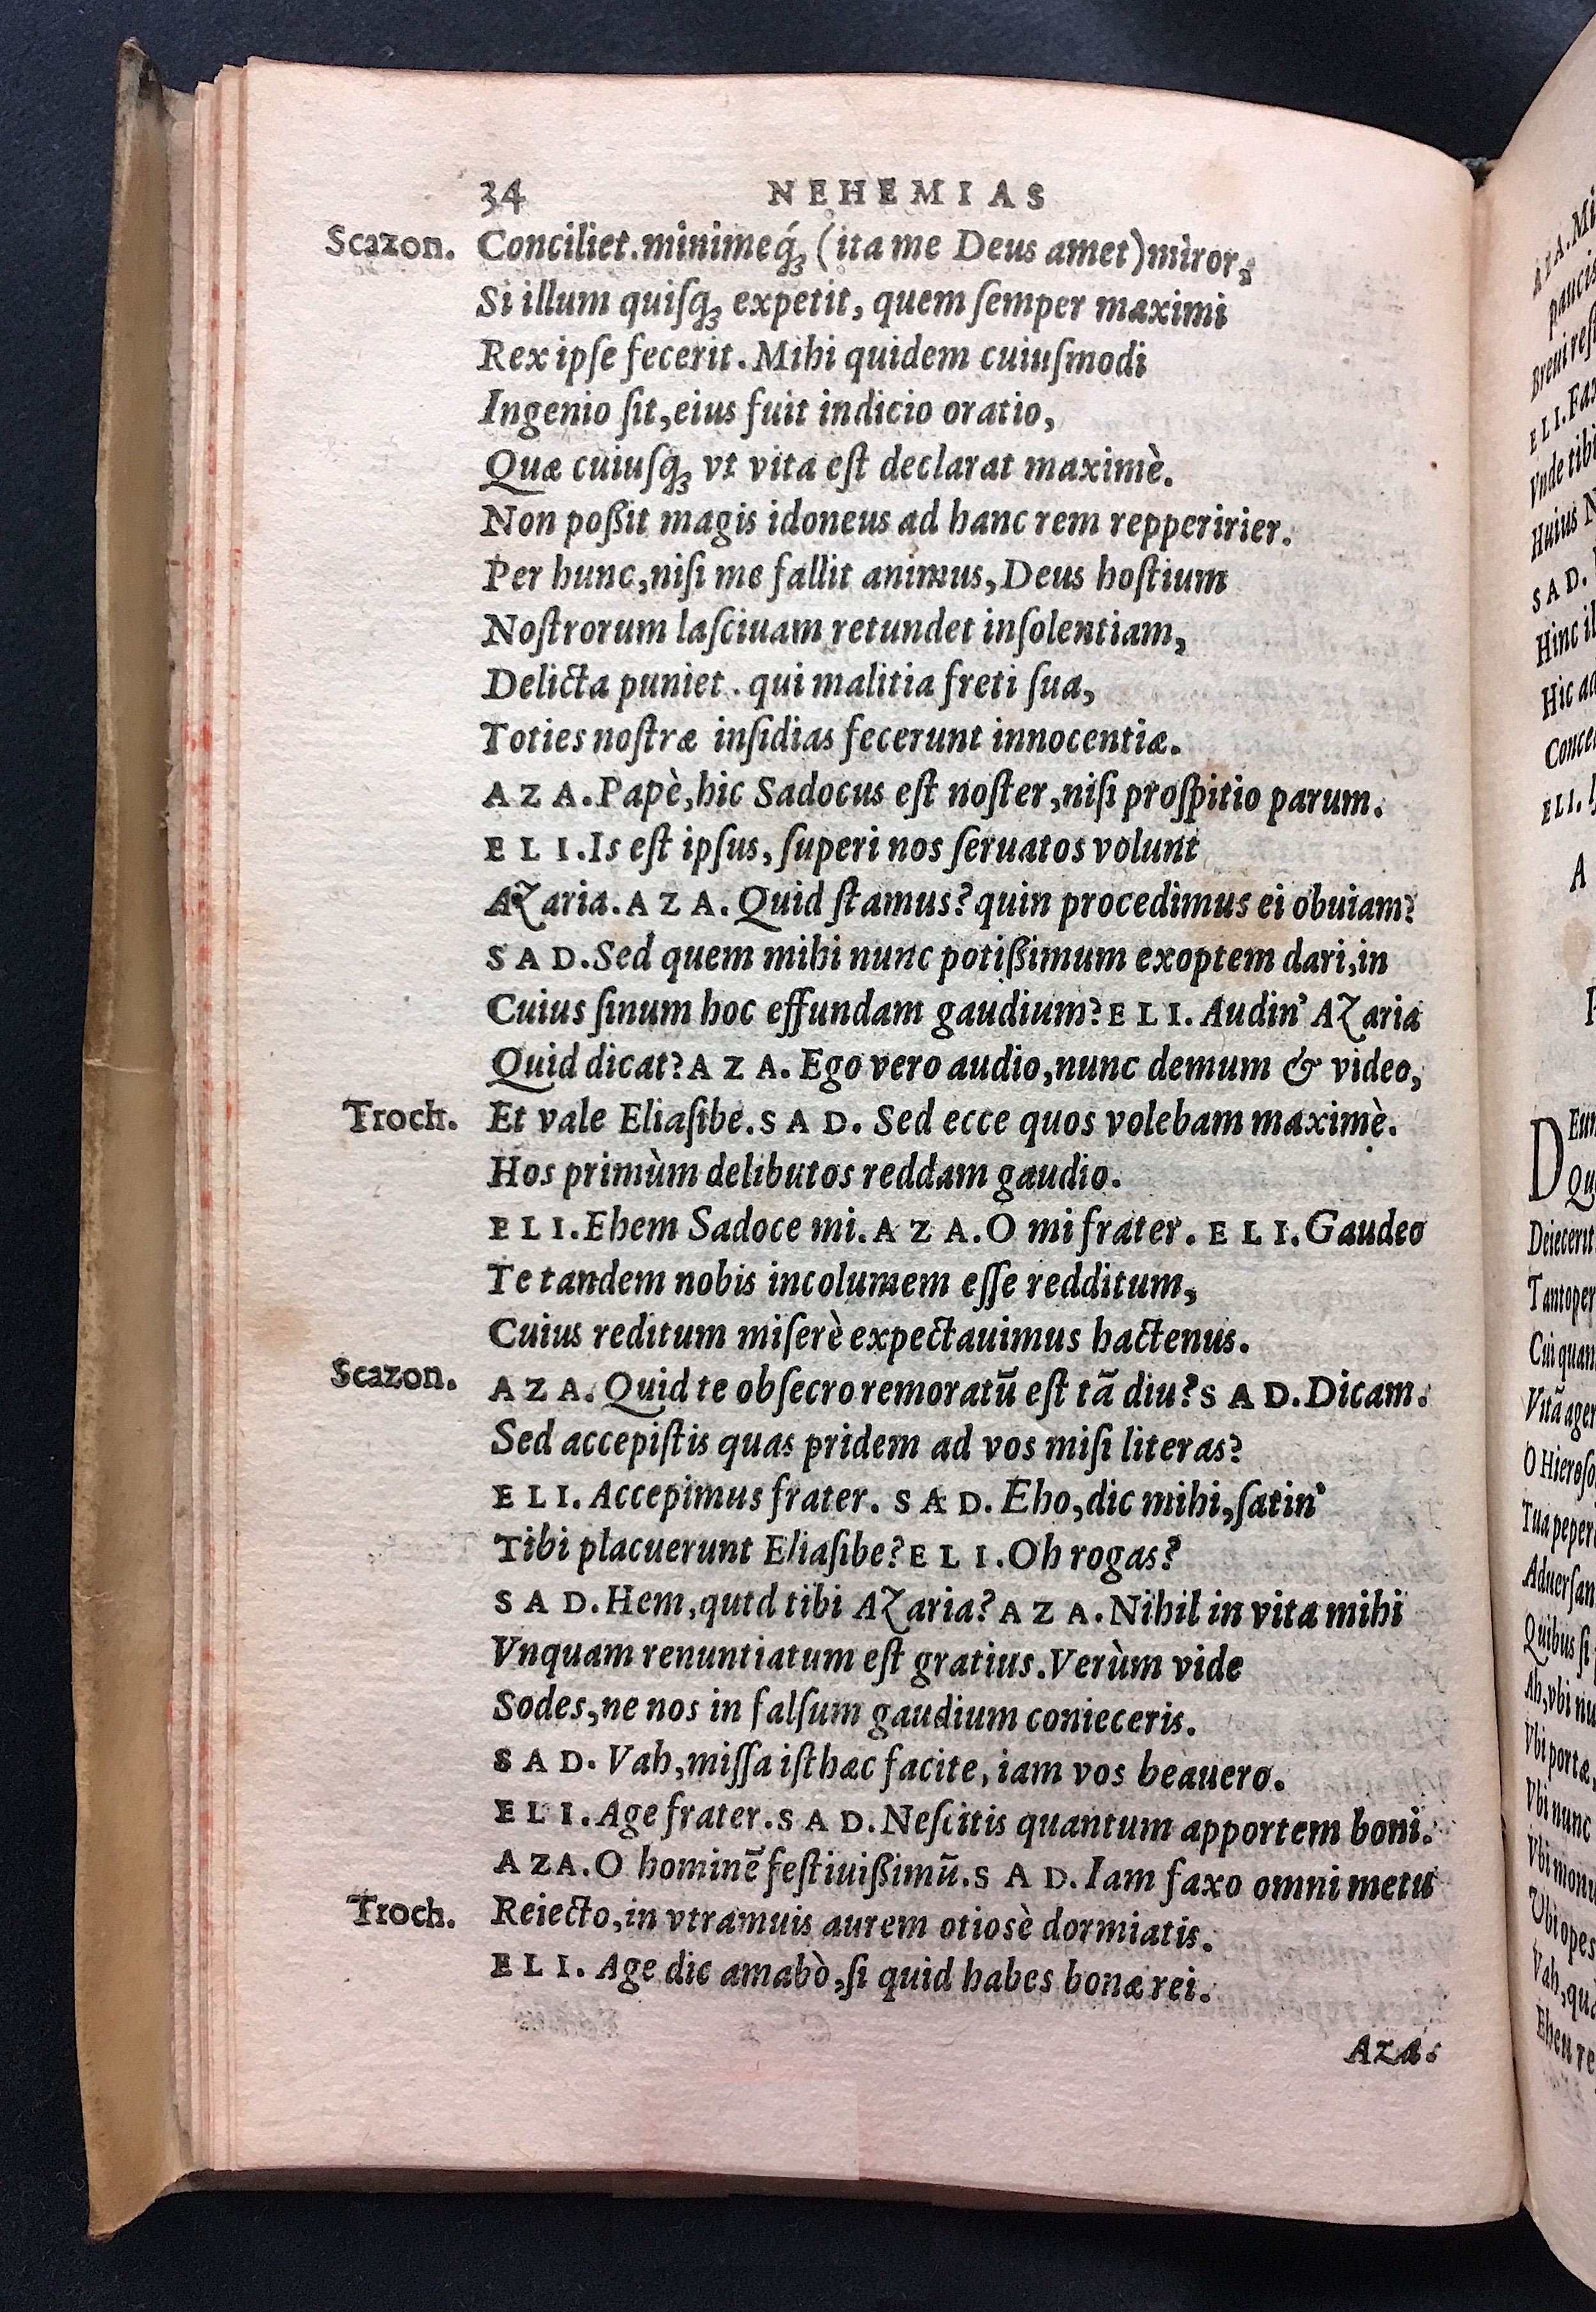 34 NEHEMIAS
Scazon. Conciliet. minimeq́ꝫ (ita me Deus amet) mìror,
Si illum quiſqꝫ expetit, quem ſemper maximi
Rex ipſe fecerit. Mihi quidem cuiuſmodi
Ingenio ſit, eius fuit indicio oratio,
Quæ cuiuſqꝫ vt vita eſt declarat maximè.
Non poßit magis idoneus ad hanc rem repperirier.
Per hunc, niſi me fallit animus, Deus hoſtium
Noſtrorum laſciuam retundet inſolentiam,
Delicta puniet. qui malitia freti ſua,
Toties noſtræ inſidias fecerunt innocentiæ.
AZA. Papè, hic Sadocus eſt noſter, niſi proſpitio parum.
ELI. Is eſt ipſus, ſuperi nos ſeruatos volunt
Azaria. AZA. Quid ſtamus? quin procedimus ei obuiam?
SAD. Sed quem mihi nunc potißimum exoptem dari, in
Cuius ſinum hoc effundam gaudium? ELI. Audin' Azaria
Quid dicat? AZA. Ego vero audio, nunc demum & video,
Troch. Et vale Eliaſibe. SAD. Sed ecce quos volebam maximè.
Hos primùm delibutos reddam gaudio.
ELI. Ehem Sadoce mi. AZA. O mi frater. ELI. Gaudeo
Te tandem nobis incolumem eſſe redditum,
Cuius reditum miſerè expectauimus hactenus.
Scazon. AZA. Quid te obſecro remoratū eſt tā diu? SAD. Dicam.
Sed accepiſtis quas pridem ad vos miſi literas?
ELI. Accepimus frater. SAD. Eho, dic mihi, ſatin'
Tibi placuerunt Eliaſibe? ELI. Oh rogas?
SAD. Hem, qutd tibi Azaria? AZA. Nihil in vita mihi
Vnquam renuntiatum eſt gratius. Verùm vide
Sodes, ne nos in falſum gaudium conieceris.
SAD. Vah, miſſa iſthæc facite, iam vos beauero.
ELI. Age frater. SAD. Neſcitis quantum apportem boni.
AZA. O hominē feſtiuißimū. SAD. Iam faxo omni metu
Troch. Reiecto, in vtramuis aurem otiosè dormiatis.
ELI. Age dic amabò, ſi quid habes bonæ rei.
AZA.